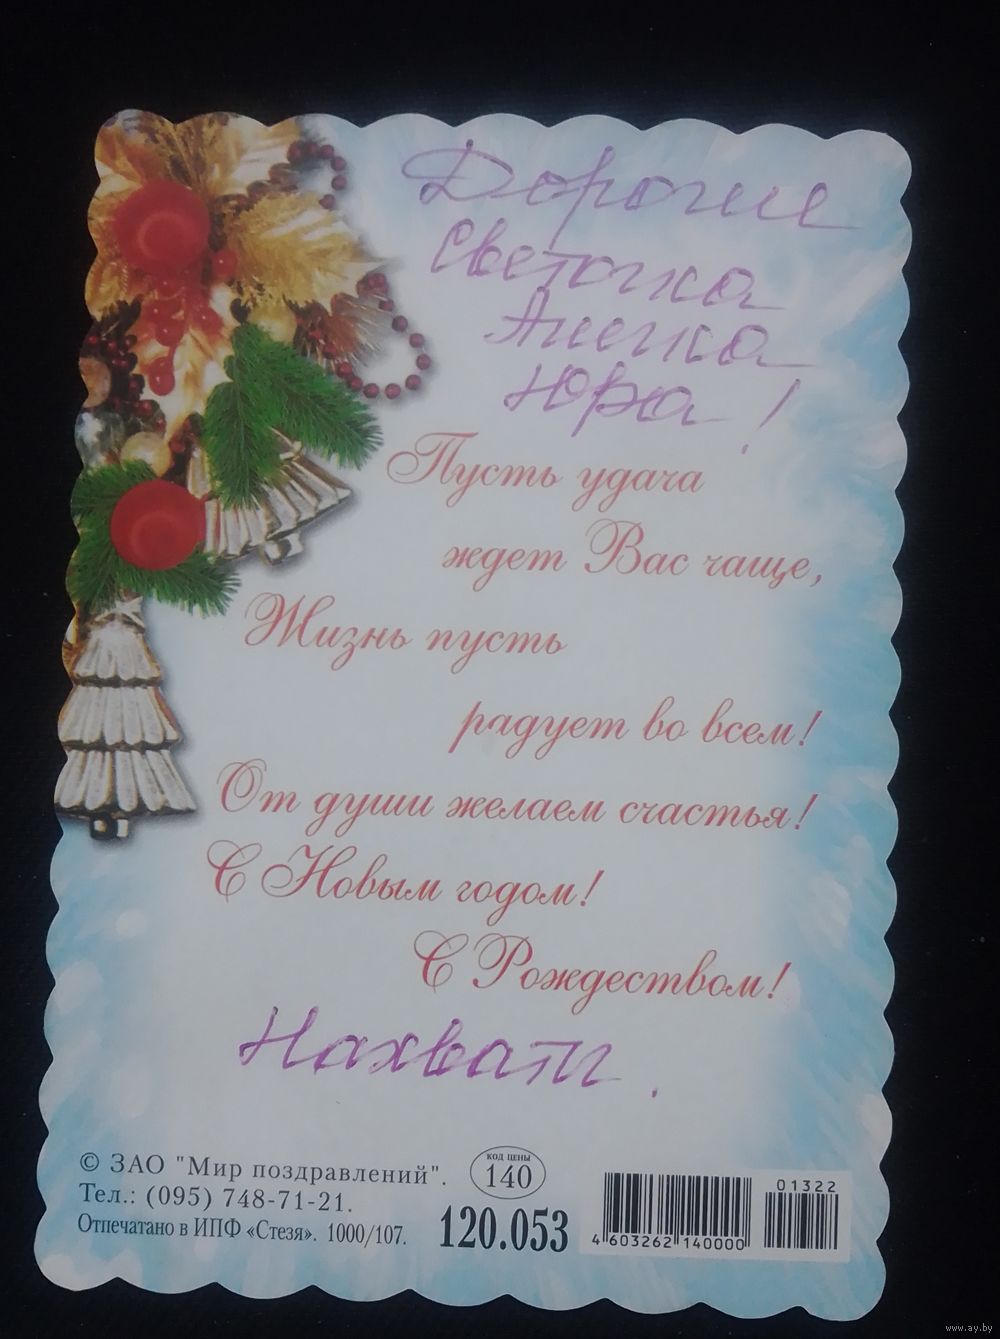 Дорогие
Светочка
Анечка
Юра!
Пусть удача
ждет Вас чаще,
Жизнь пусть
радует во всем!
От души желаем счастья!
С Новым годом!
С Рождеством!
Нахват.
© ЗАО "Мир поздравлений".
Тел.: (095) 748-71-21.
Отпечатано в ИПФ «Стезя». 1000/107.
КОД ЦЕНЫ
140
120.053
01322
4 603262 140000
www.ay.by